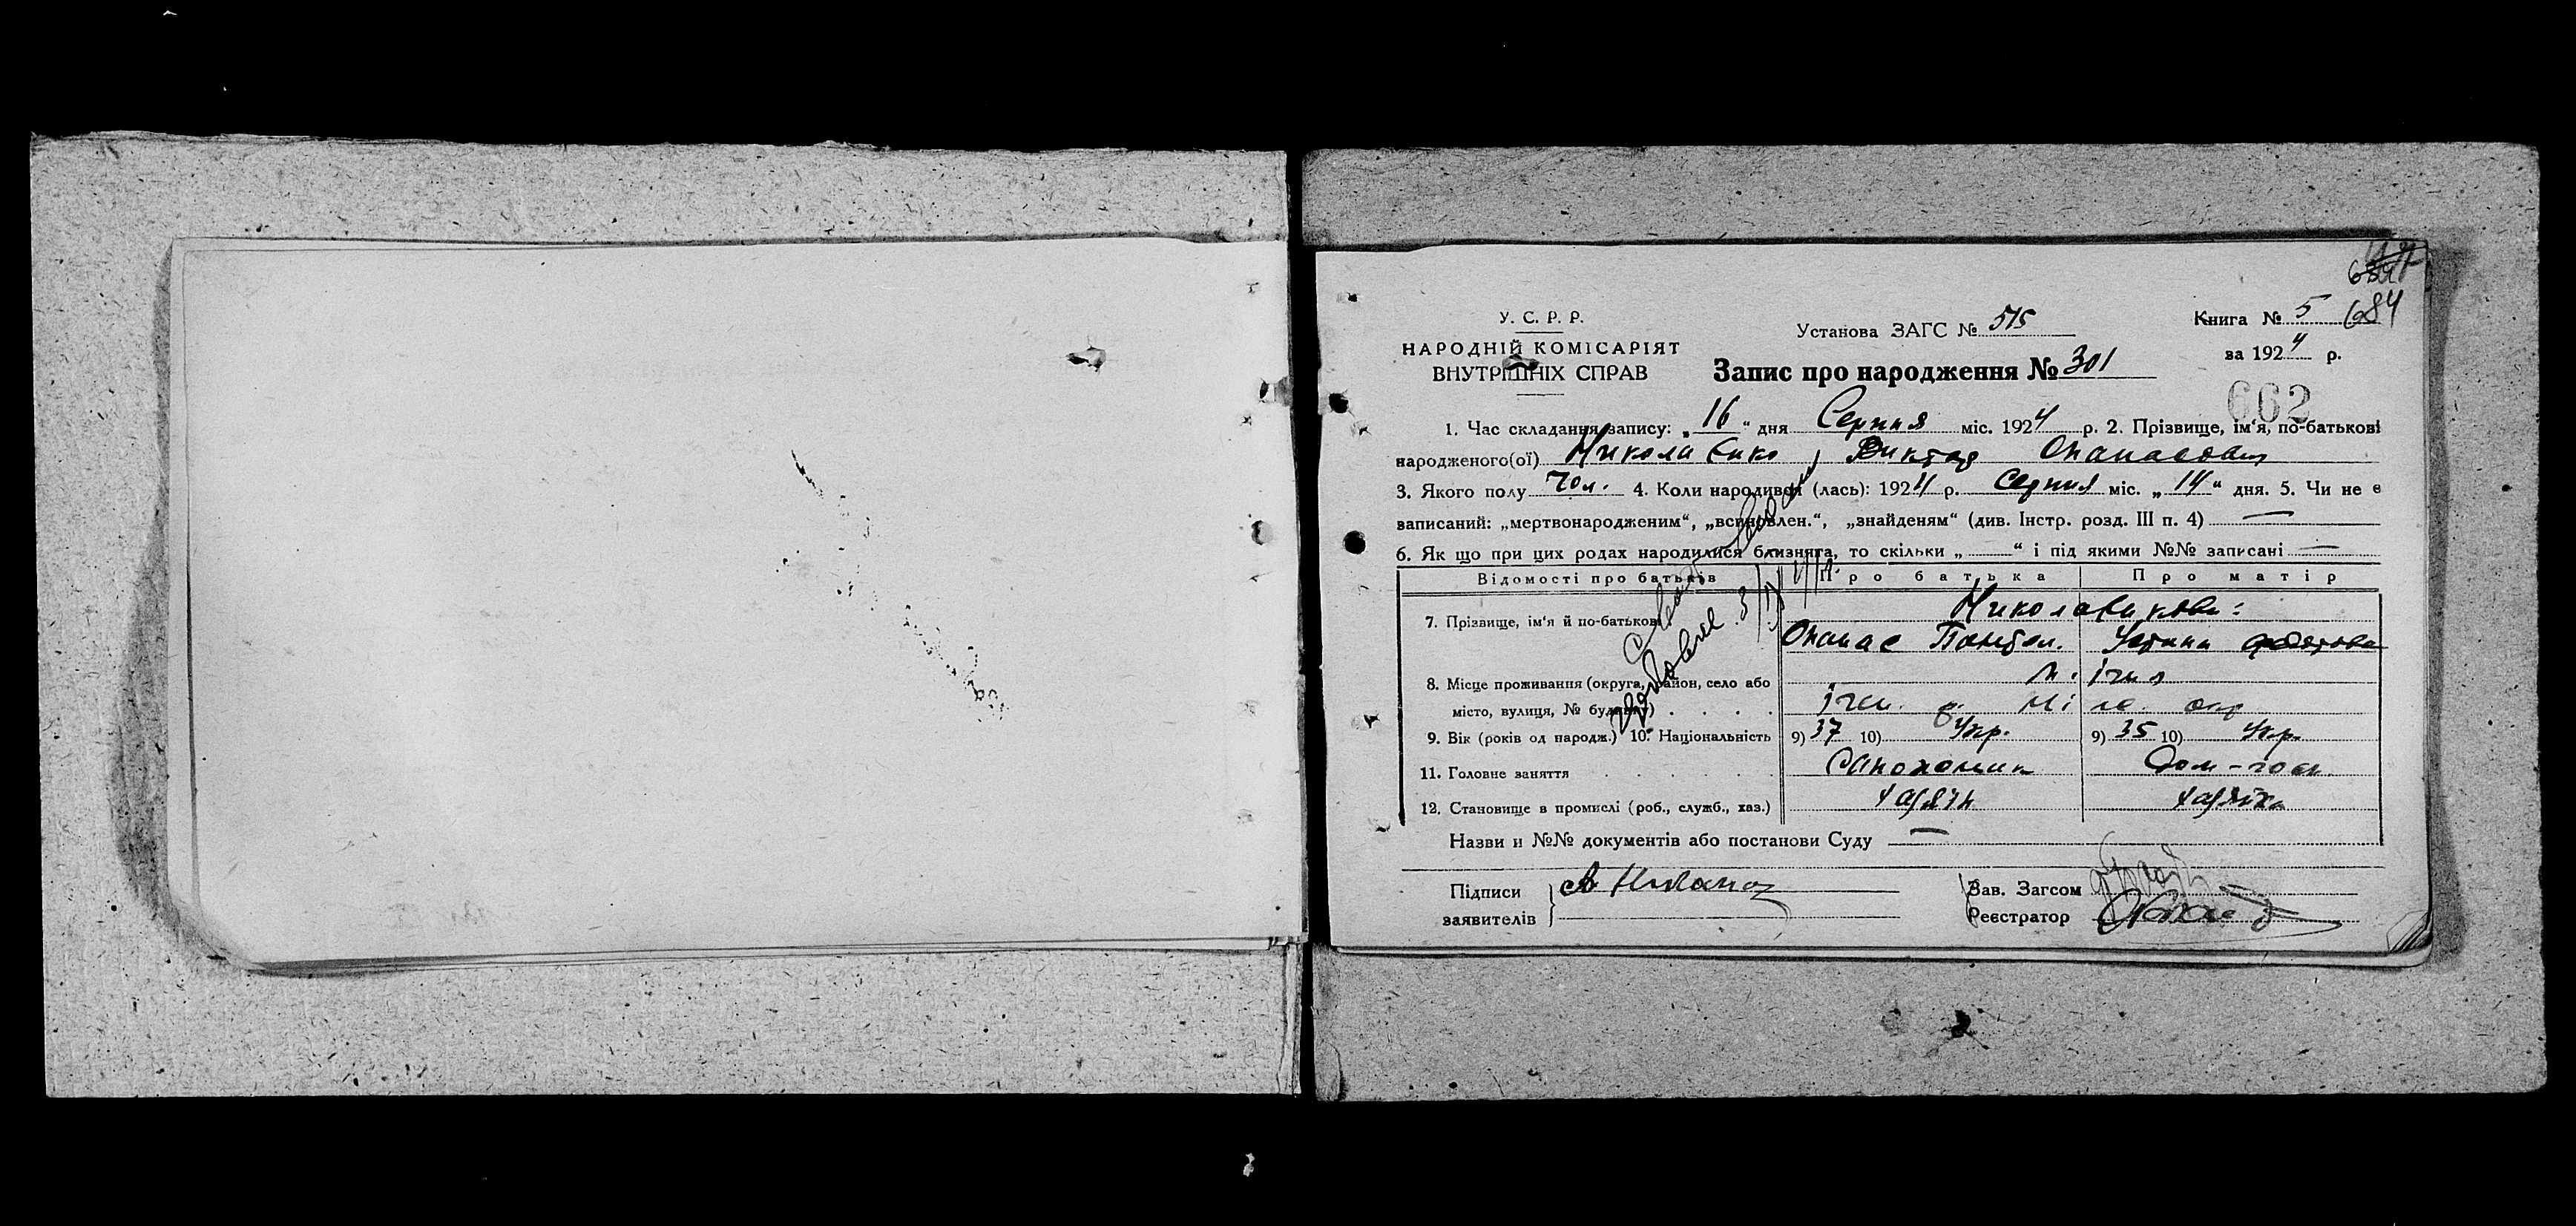 684
У. С. Р. Р.
НАРОДНІЙ КОМІСАРІЯТ
ВНУТРІШНІХ СПРАВ
Установа ЗАГС № 515
Книга № 5
за 1924 р.
Запис про народження № 301
662
1. Час складання запису: „16“ дня Серпня міс. 1924 р. 2. Прізвище, ім‘я, по-батькові
народженого(ої) Николаенко, Виктор Опанасович
3. Якого полу чол. 4. Коли народився (лась): 1924 р. Серпня міс. „14“ дня. 5. Чи не є
записаний: „мертвонародженим“, „всиновлен.“, „знайденям“ (див. Інстр. розд. III п. 4) —
6. Як що при цих родах народилися близнята, то скільки „—“ і під якими №№ записані —
Відомості про батьків Про батька Про матір
7. Прізвище, ім‘я й по-батькові
Опанас Устина
8. Місце проживання (округа, район, село або
місто, вулиця, № будинку)
м. Ічня
Ічен. р. Ніж. окр
9. Вік (років од народж.) 10. Національність 9) 37 10) Укр. 9) 35 10) Укр.
11. Головне заняття Дом-госп.
12. Становище в промислі (роб., служб., хаз.) хазяїн хазяйка
Назви и №№ документів або постанови Суду —
Підписи
заявителів
Зав. Загсом
Реєстратор